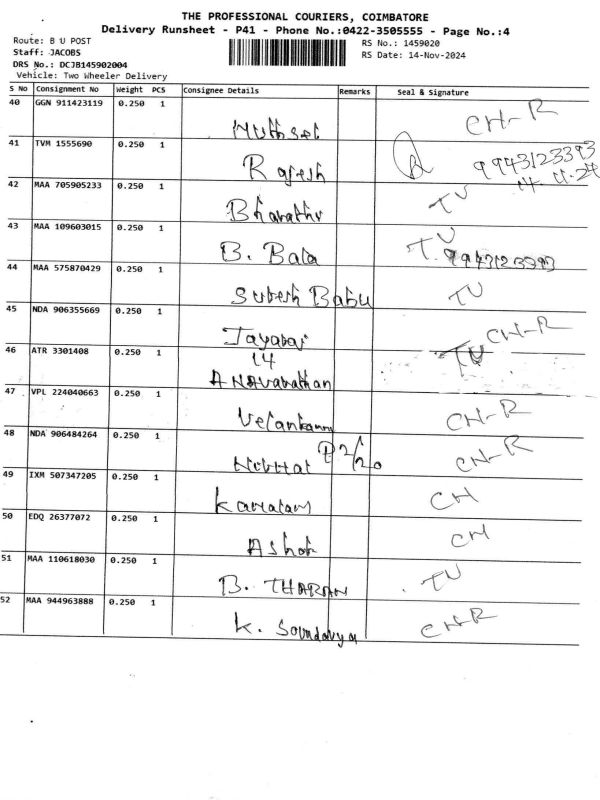 THE PROFESSIONAL COURIERS, COIMBATORE
Delivery Runsheet - P41 - Phone No.:0422-3505555 - Page No.:4
Route: B U POST
RS No.: 1459020
Staff: JACOBS
RS Date: 14-Nov-2024
DRS No.: DCJB145902004
Vehicle: Two Wheeler Delivery
S No Consignment No Weight PCS Consignee Details Remarks Seal & Signature
40 GGN 911423119 0.250 1
CH-R
41 TVM 1555690 0.250 1
Rajesh 9943123393
14.11.24
42 MAA 705905233 0.250 1
Bharathi TU
43 MAA 109603015 0.250 1
B. Bala T.U
9943123393
44 MAA 575870429 0.250 1
Suresh Babu TU
45 NDA 906355669 0.250 1
Jayaraj CH-R
46 ATR 3301408 0.250 1
14 TU
47 VPL 224040663 0.250 1
CH-R
48 NDA 906484264 0.250 1
CH-R
49 IXM 507347205 0.250 1
CH
50 EDQ 26377072 0.250 1
Ashok CH
51 MAA 110618030 0.250 1
B. THARAN TU
52 MAA 944963888 0.250 1
K. Soundarya CH-R